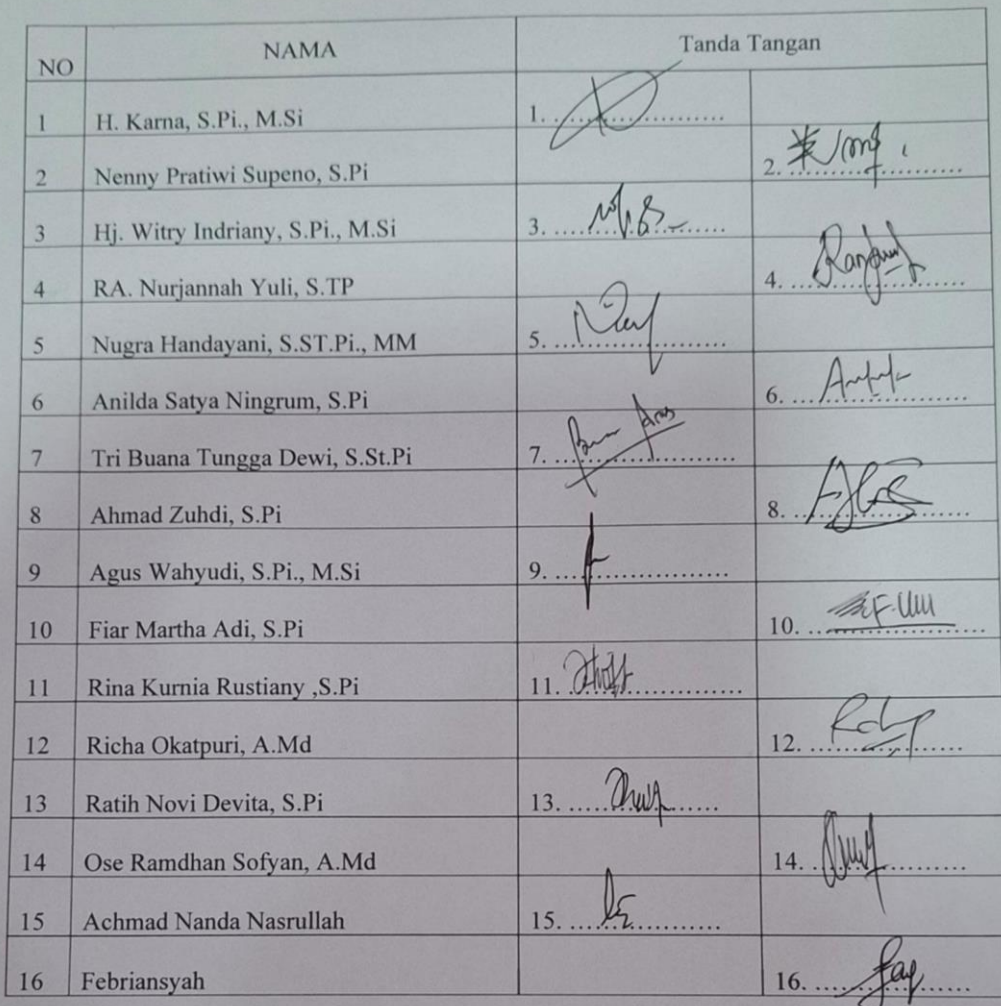 NO NAMA Tanda Tangan
1 H. Karna, S.Pi., M.Si 1. ....................
2 Nenny Pratiwi Supeno, S.Pi 2. ....................
3 Hj. Witry Indriany, S.Pi., M.Si 3. ....................
4 RA. Nurjannah Yuli, S.TP 4. ....................
5 Nugra Handayani, S.ST.Pi., MM 5. ....................
6 Anilda Satya Ningrum, S.Pi 6. ....................
7 Tri Buana Tungga Dewi, S.St.Pi 7. ....................
8 Ahmad Zuhdi, S.Pi 8. ....................
9 Agus Wahyudi, S.Pi., M.Si 9. ....................
10 Fiar Martha Adi, S.Pi 10. ....................
11 Rina Kurnia Rustiany ,S.Pi 11. ....................
12 Richa Okatpuri, A.Md 12. ....................
13 Ratih Novi Devita, S.Pi 13. ....................
14 Ose Ramdhan Sofyan, A.Md 14. ....................
15 Achmad Nanda Nasrullah 15. ....................
16 Febriansyah 16. ....................